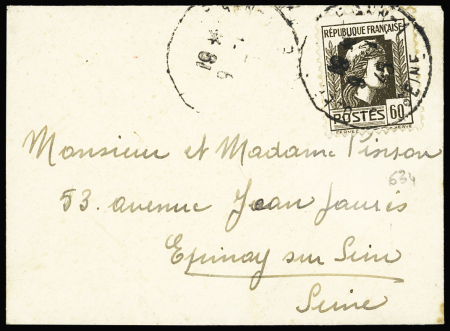 RÉPUBLIQUE FRANÇAISE
POSTES 60
18 *
9
SEINE
Monsieur et Madame Pinson
634
53. avenue Jean Jaurès
Epinay sur Sein
Seine